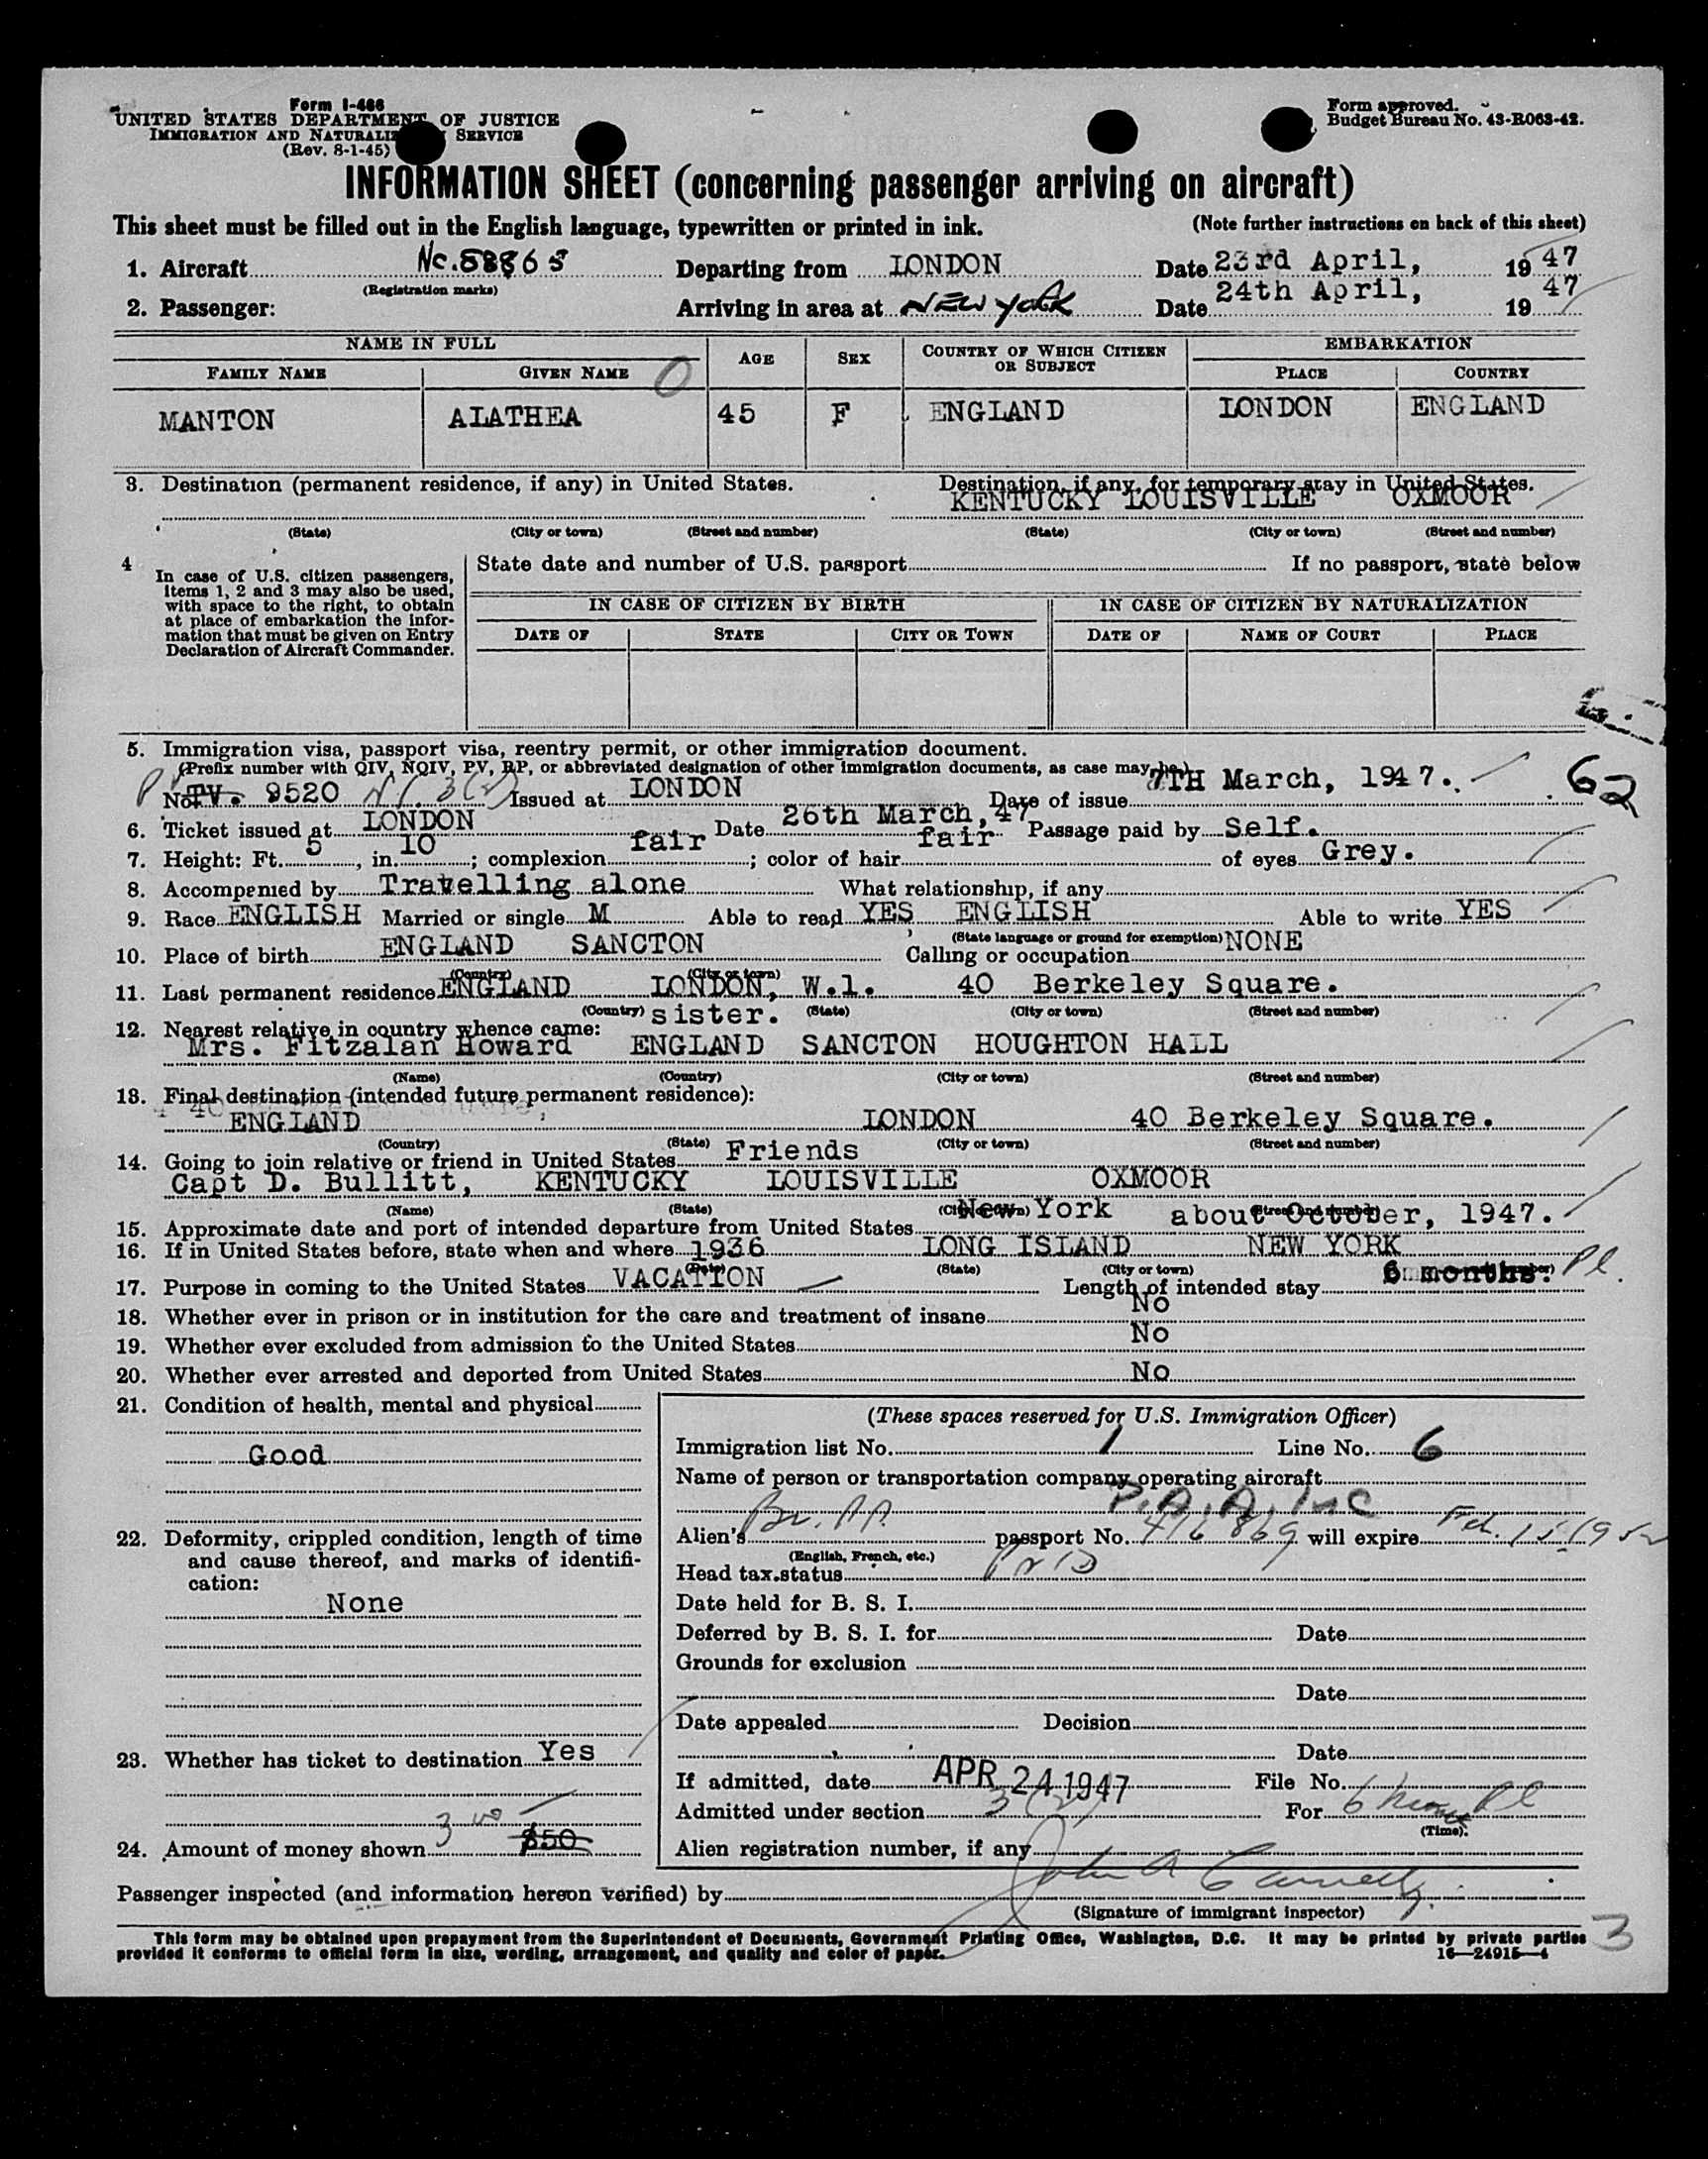 Form I-466
UNITED STATES DEPARTMENT OF JUSTICE
IMMIGRATION AND NATURALIZ SERVICE
(Rev. 8-1-45)
Form approved.
Budget Bureau No. 43-R063-42.
INFORMATION SHEET (concerning passenger arriving on aircraft)
This sheet must be filled out in the English language, typewritten or printed in ink. (Note further instructions on back of this sheet)
1. Aircraft Nc.58865 Departing from LONDON Date 23rd April, 1947
(Registration marks)
2. Passenger: Arriving in area at NEW YORK Date 24th April, 1947
NAME IN FULL AGE SEX COUNTRY OF WHICH CITIZEN OR SUBJECT EMBARKATION
FAMILY NAME GIVEN NAME O PLACE COUNTRY
MANTON ALATHEA 45 F ENGLAND LONDON ENGLAND
3. Destination (permanent residence, if any) in United States. Destination, if any, for temporary stay in United States.
KENTUCKY LOUISVILLE OXMOOR
(State) (City or town) (Street and number) (State) (City or town) (Street and number)
4 In case of U.S. citizen passengers, items 1, 2 and 3 may also be used, with space to the right, to obtain at place of embarkation the information that must be given on Entry Declaration of Aircraft Commander.
State date and number of U.S. passport If no passport, state below
IN CASE OF CITIZEN BY BIRTH IN CASE OF CITIZEN BY NATURALIZATION
DATE OF STATE CITY OR TOWN DATE OF NAME OF COURT PLACE
5. Immigration visa, passport visa, reentry permit, or other immigration document.
(Prefix number with QIV, NQIV, PV, RP, or abbreviated designation of other immigration documents, as case may be.)
PV No. TV. 9520 3(2) Issued at LONDON Date of issue 7TH March, 1947. 62
6. Ticket issued at LONDON Date 26th March, 47 Passage paid by Self.
7. Height: Ft. 5, in. 10; complexion fair; color of hair fair of eyes Grey.
8. Accompanied by Travelling alone What relationship, if any
9. Race ENGLISH Married or single M Able to read YES ENGLISH Able to write YES
(State language or ground for exemption)
10. Place of birth ENGLAND SANCTON Calling or occupation NONE
(Country) (City or town)
11. Last permanent residence ENGLAND LONDON, W.1. 40 Berkeley Square.
(Country) (State) (City or town) (Street and number)
12. Nearest relative in country whence came: sister.
Mrs. Fitzalan Howard ENGLAND SANCTON HOUGHTON HALL
(Name) (Country) (City or town) (Street and number)
13. Final destination (intended future permanent residence):
ENGLAND LONDON 40 Berkeley Square.
(Country) (State) (City or town) (Street and number)
14. Going to join relative or friend in United States Friends
Capt D. Bullitt, KENTUCKY LOUISVILLE OXMOOR
(Name) (State) (City or town) (Street and number)
15. Approximate date and port of intended departure from United States New York about October, 1947.
16. If in United States before, state when and where 1936 LONG ISLAND NEW YORK
(Date) (State) (City or town) (Street and number)
17. Purpose in coming to the United States VACATION Length of intended stay 6 months. Pl.
18. Whether ever in prison or in institution for the care and treatment of insane No
19. Whether ever excluded from admission to the United States No
20. Whether ever arrested and deported from United States No
21. Condition of health, mental and physical
Good
22. Deformity, crippled condition, length of time and cause thereof, and marks of identification:
None
23. Whether has ticket to destination Yes
24. Amount of money shown 300 $50
(These spaces reserved for U.S. Immigration Officer)
Immigration list No. 1 Line No. 6
Name of person or transportation company operating aircraft
P.A.A. Inc
Alien's Br. PP. passport No. 416869 will expire Feb. 15, 1952
(English, French, etc.)
Head tax status
Date held for B. S. I.
Deferred by B. S. I. for Date
Grounds for exclusion
Date
Date appealed Decision
Date
If admitted, date APR 24 1947 File No.
Admitted under section 3(2) For 6 mons Pl
(Time).
Alien registration number, if any
Passenger inspected (and information hereon verified) by John A
(Signature of immigrant inspector)
This form may be obtained upon prepayment from the Superintendent of Documents, Government Printing Office, Washington, D.C. It may be printed by private parties
provided it conforms to official form in size, wording, arrangement, and quality and color of paper. 16—24915—4
3